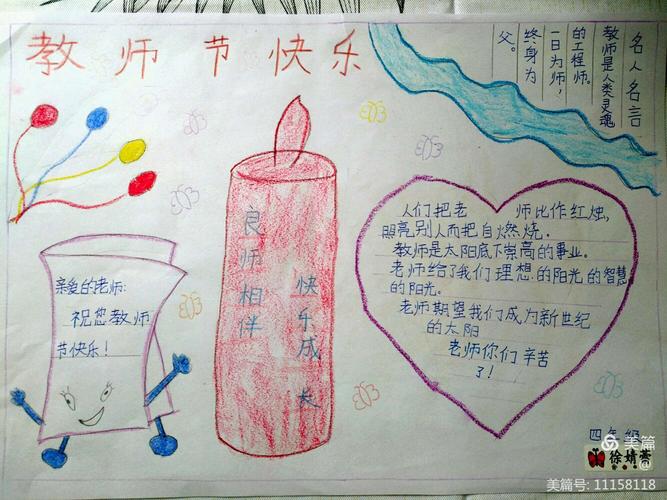 教师节快乐
名人名言
教师是人类灵魂
的工程师。
一日为师，
终身为
父。
亲爱的老师:
祝您教师
节快乐！
良师相伴
快乐成长
人们把老 师比作红烛,
照亮别人而把自燃烧.
教师是太阳底下崇高的事业.
老师给了我们理想的阳光的智慧
的阳光.
老师期望我们成为新世纪
的太阳
老师你们辛苦
了!
四年级
徐婧萱
美篇
美篇号: 11158118